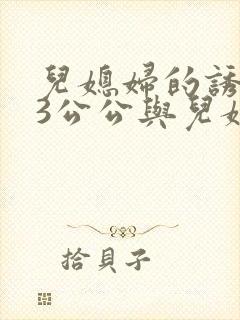 兒媳婦的誘
3公公與兒媳
拾貝子